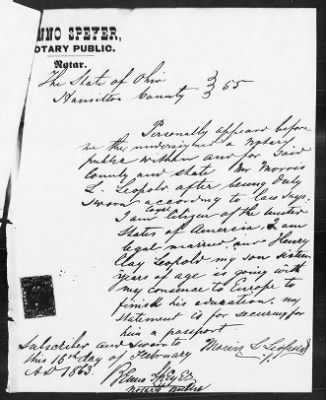 NNO SPEYER,
OTARY PUBLIC.
Notar.
The State of Ohio
Hamilton County } SS
Personally appeard before
me the undersigned a notary
public within and for said
County and State Mr Morris
L. Leopold after being Duly
Sworn according to law says.
I am Legal Citizen of the United
States of America. I am
legal married, and Henry
Clay Leopold my son sixteen
years of age is going with
my consence to Europe to
finish his education. my
statement is for securing for
him a passport
Subscribed and Sworn to
this 16th day of February
AD 1863.
Morris L. Leopold
Benno Speyer
Notary Public